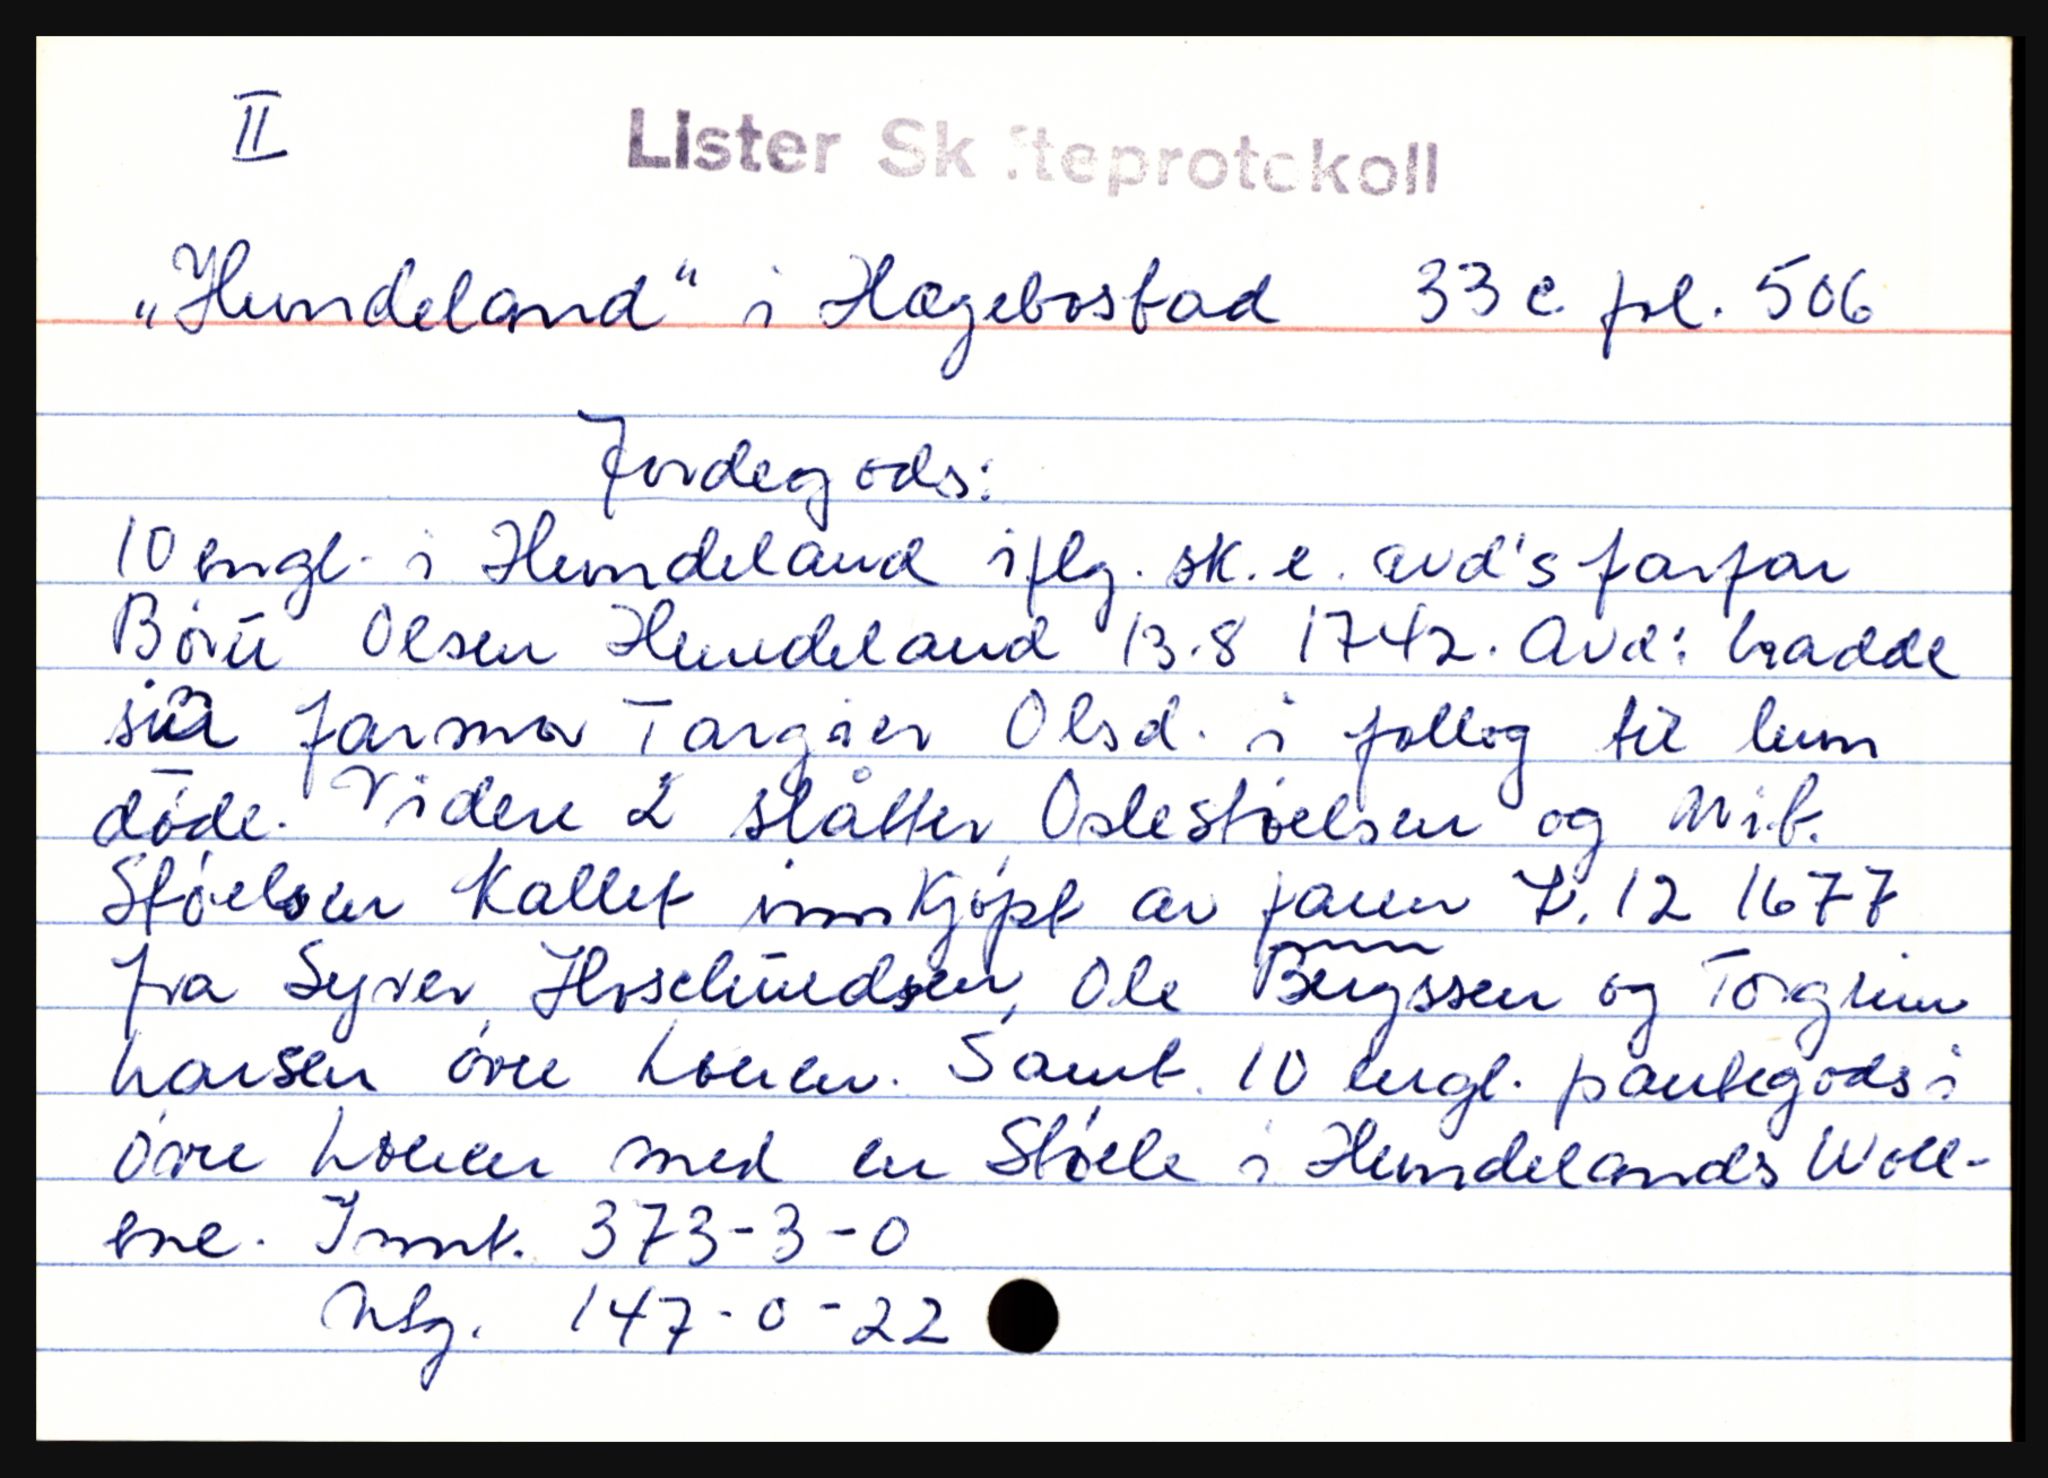 II
Lister Skifteprotokoll
„Hundeland“ i Hægebostad 33 c. fol. 506
Jordegods:
10 engl. i Hundeland iflg. sk. e. avd's farfar
Børu Olsen Hundeland 13.8 1742. Avd: hadde
sin farmor Targier Olsd. i follog til hun
døde. Videre 2 slåtter Oslestøelsen og Mit.
Støelsen kallet innkjøpt av faren 7.12 1677
fra Syver Hoschuedsen, Ole Bergssen og Torgrim
Larsen øvre Loenen. Samt 10 engl. pantegods i
øvre Loenen med en Støele i Hundelands Woll-
ene. Innt. 373-3-0
Utg. 147-0-22